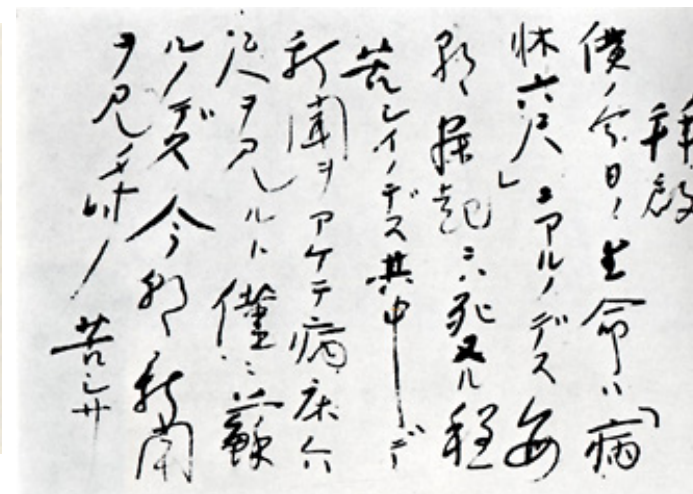 拝啓
僕ノ今日ノ生命ハ「病
牀六尺」ニアルノデス毎
朝寐起ニハ死ヌル程
苦シイノデス其中デ
新聞ヲアケテ病床六
尺ヲ見ルト僅ニ蘇
ルノデス今朝新聞
ヲ見タ時ノ苦シサ